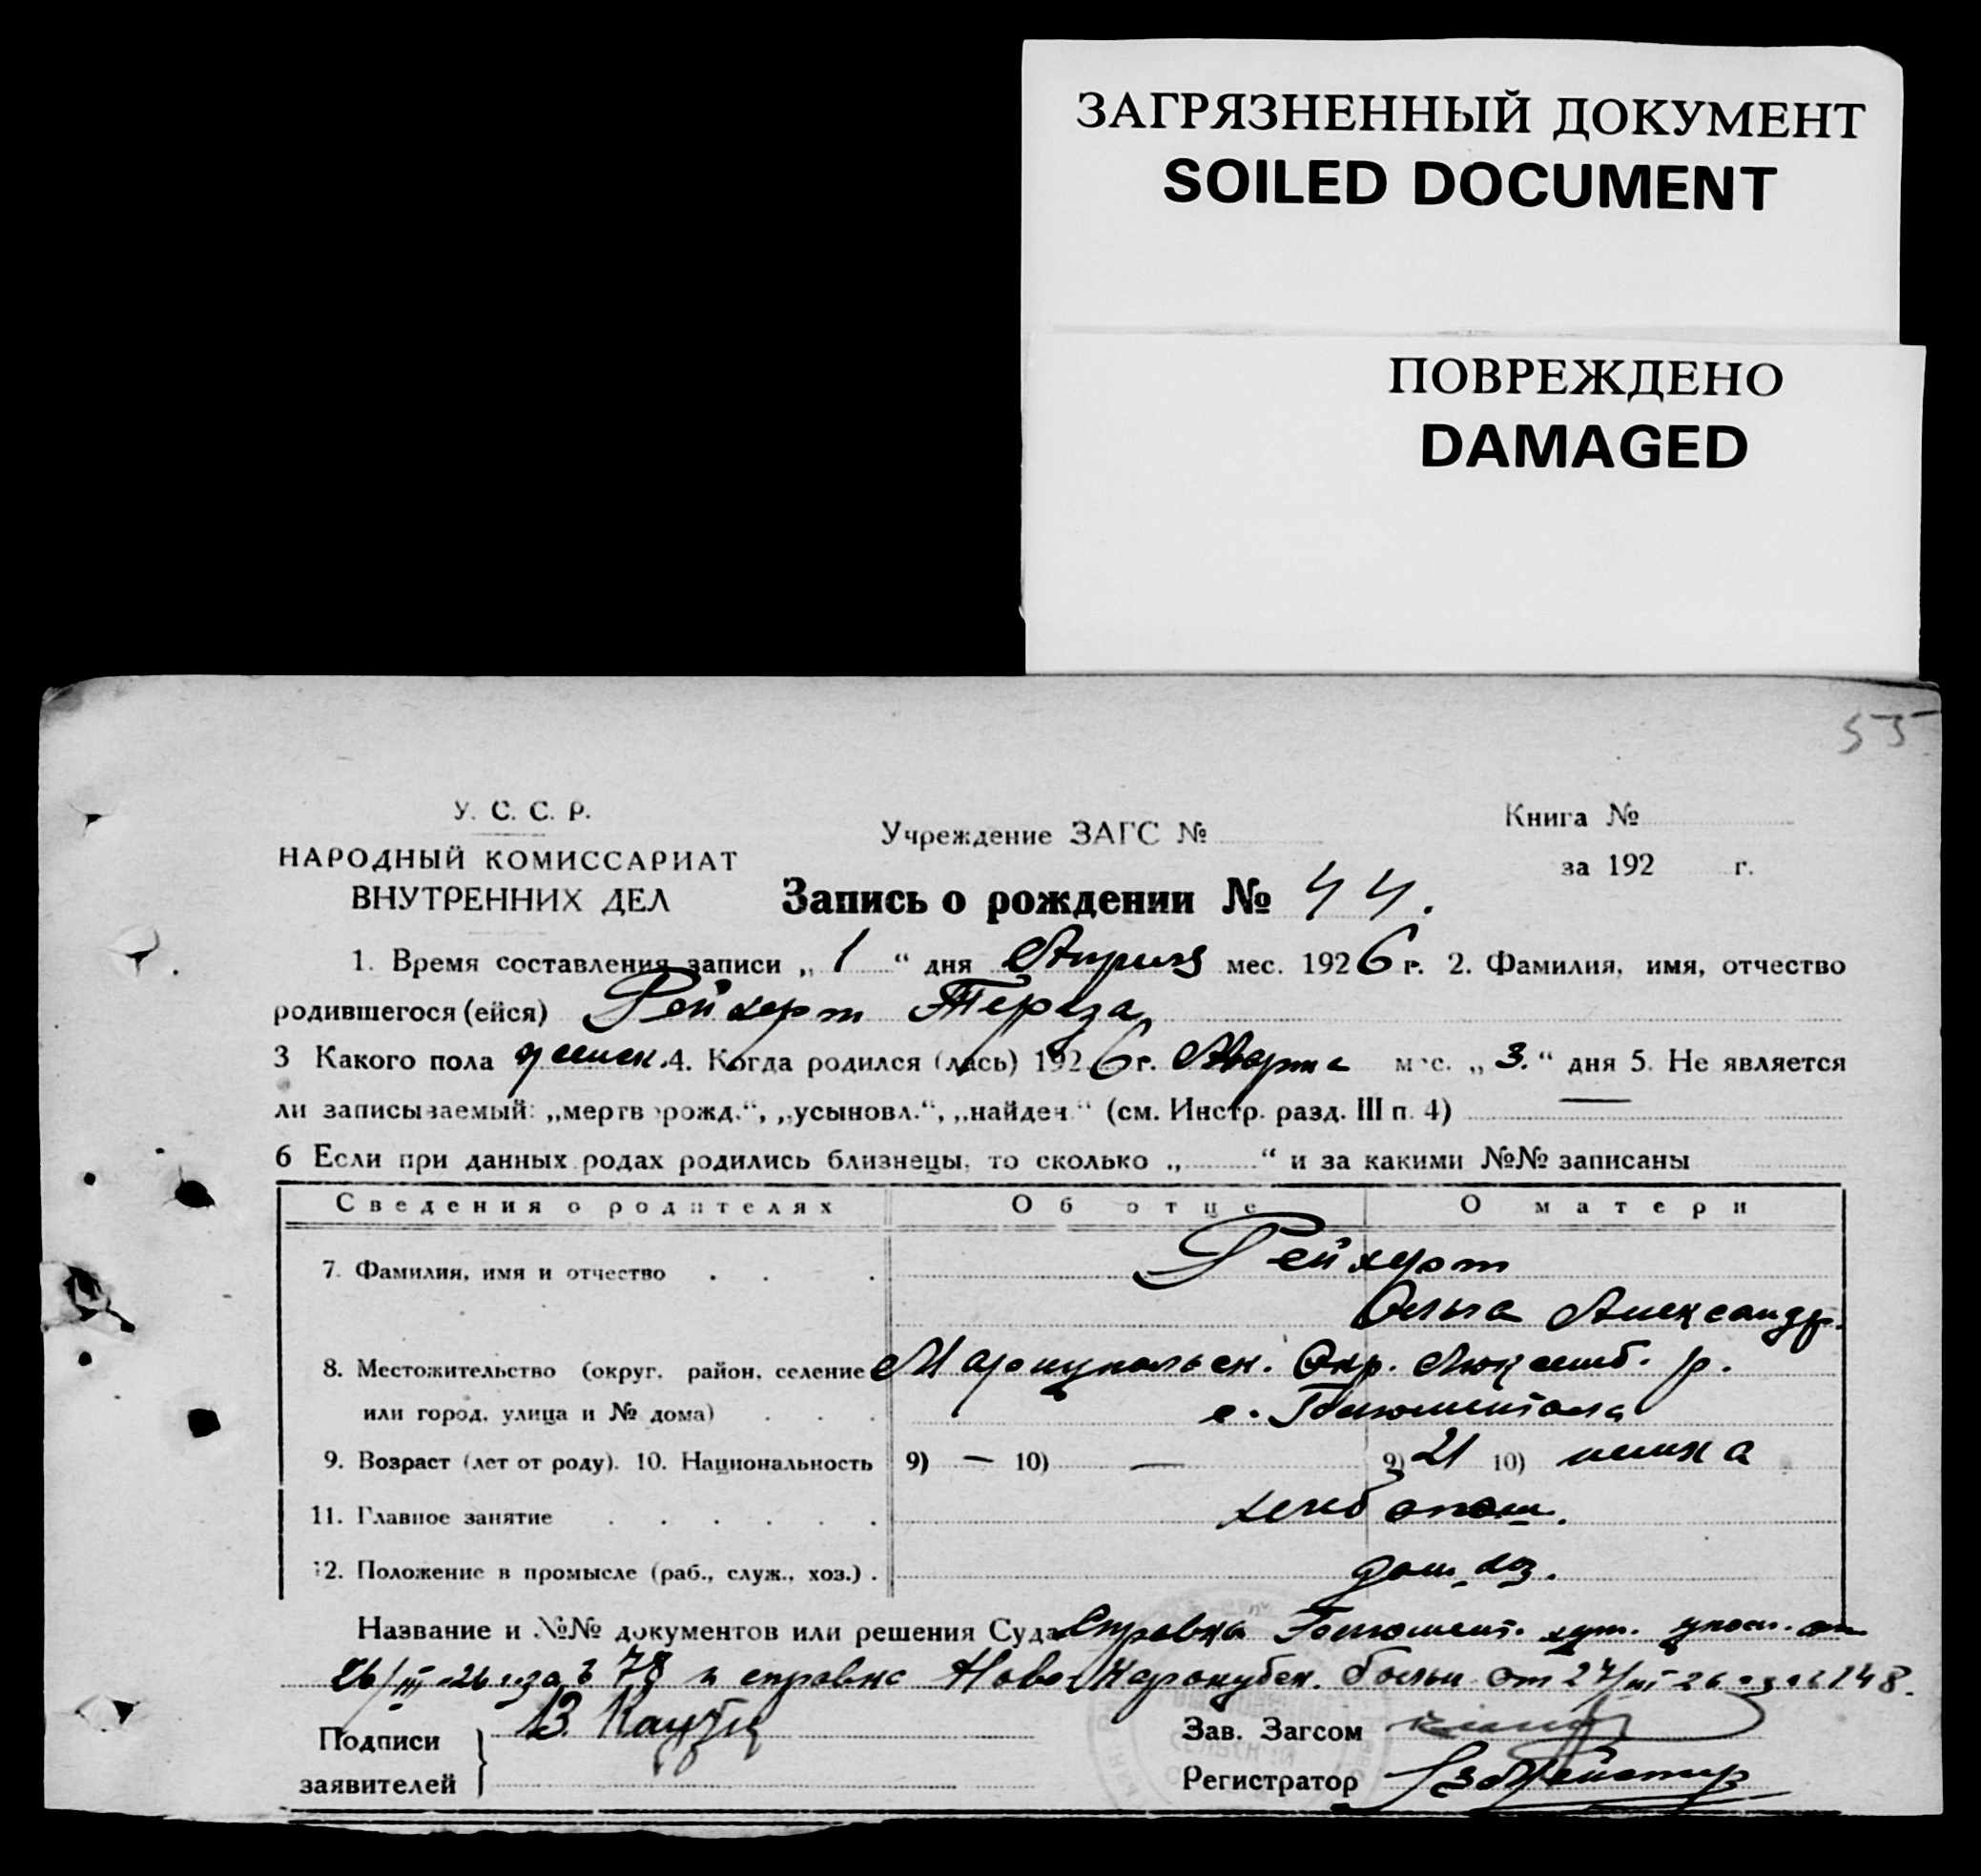 ЗАГРЯЗНЕННЫЙ ДОКУМЕНТ
SOILED DOCUMENT
ПОВРЕЖДЕНО
DAMAGED
55
У. С. С. Р.
НАРОДНЫЙ КОМИССАРИАТ
ВНУТРЕННИХ ДЕЛ
Учреждение ЗАГС №
Книга №
за 192 г.
Запись о рождении № 44.
1. Время составления записи „ 1 “ дня Апреля мес. 1926 г. 2. Фамилия, имя, отчество
родившегося (ейся) Рейхерт Тереза
3 Какого пола женск. 4. Когда родился (лась) 1926 г. Марта мес. „ 3. “ дня 5. Не является
ли записываемый: „мертворожд.“, „усыновл.“, „найден“ (см. Инстр. разд. III п. 4) —
6 Если при данных родах родились близнецы, то сколько „ “ и за какими №№ записаны
Сведения о родителях Об отце О матери
7. Фамилия, имя и отчество . . . Рейхерт
Ольга Александр.
8. Местожительство (округ, район, селение Мариупольск. Окр. Люксемб. р.
или город, улица и № дома) . . . с.
9. Возраст (лет от роду). 10. Национальность 9) — 10) — 9) 21 10) немка
11. Главное занятие . . . . . . хлебопаш.
12. Положение в промысле (раб., служ., хоз.) . дом. хоз.
Название и №№ документов или решения Суда Справка от
26/III-26 г. за № 78 и справка Ново- больн от 27/III 26 г. за № 148.
Подписи
заявителей
В.
Зав. Загсом
Регистратор